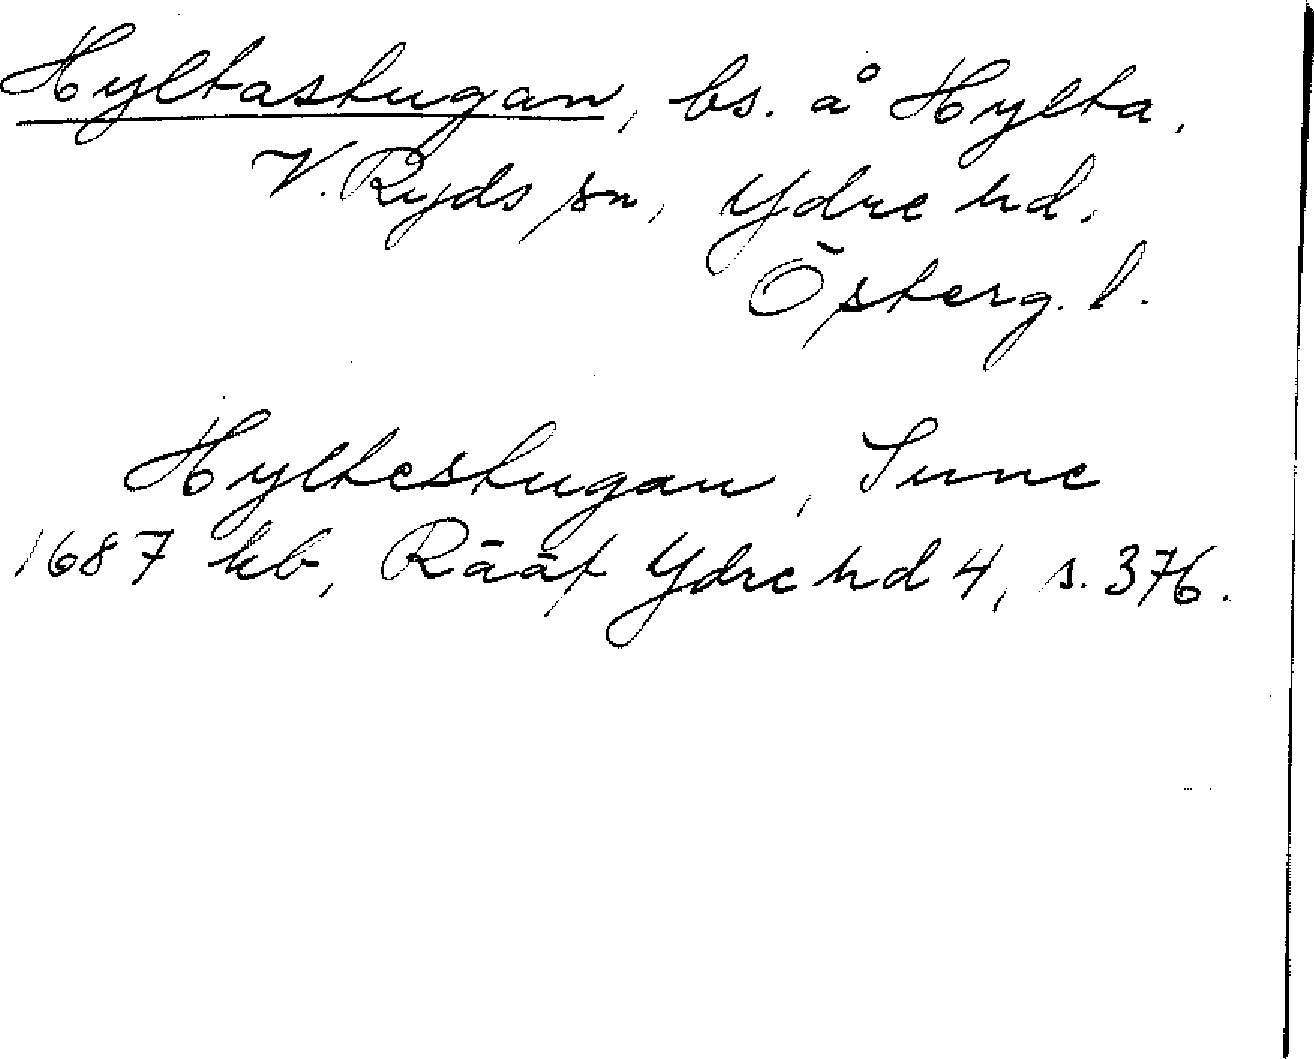 Hyltastugan, bs. å Hylta.
V. Ryds sn, Ydre hd.
Österg. l.
Hyltestugan, Sune
1687 kb, Rääf Ydre hd 4, s. 376.